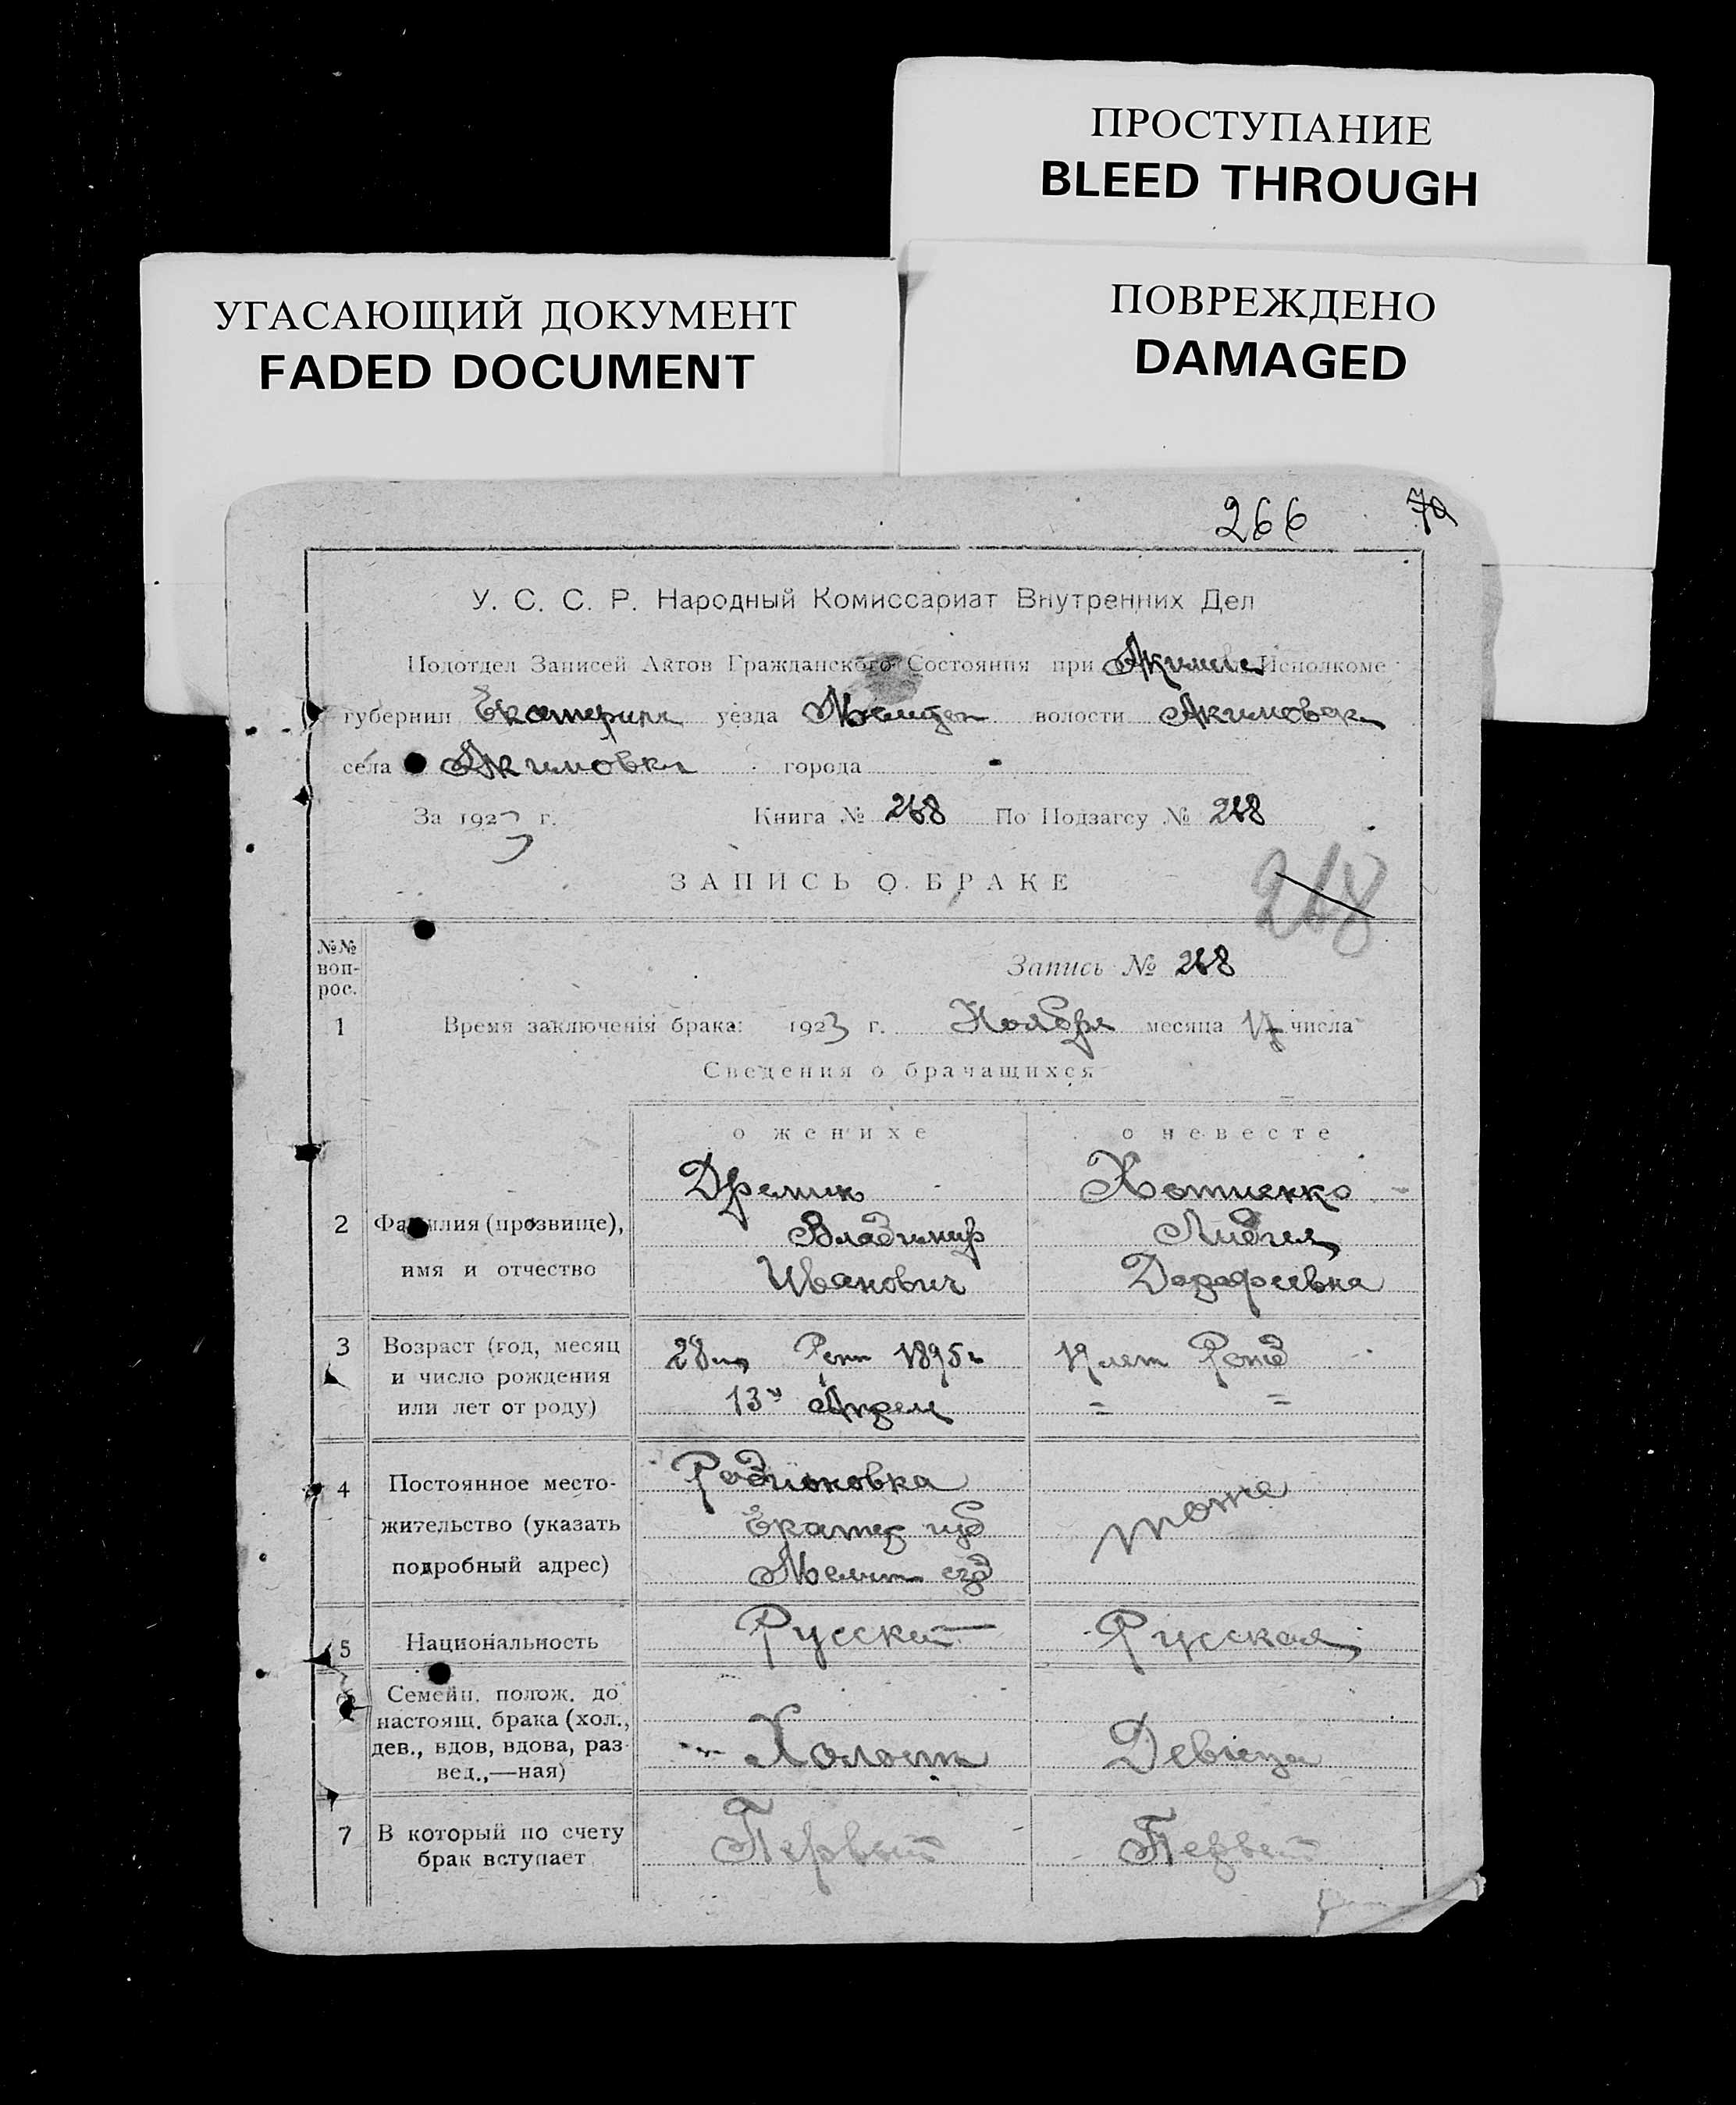 ПРОСТУПАНИЕ
BLEED THROUGH
УГАСАЮЩИЙ ДОКУМЕНТ
FADED DOCUMENT
ПОВРЕЖДЕНО
DAMAGED
266 70
У. С. С. Р. Народный Комиссариат Внутренних Дел
Подотдел Записей Актов Гражданского Состояния при Исполкоме
губернии Екатерин уезда волости Акимовск
села Акимовки города
За 1923 г. Книга № 268 По Подзагсу № 268
ЗАПИСЬ О БРАКЕ
268
№№ воп-рос.
Запись № 268
1 Время заключенія брака: 1923 г. Ноября месяца 17 числа
Сведения о брачащихся
о женихе о невесте
Дремик Хотиенко
2 Фамилия (прозвище), Владимир Лидия
имя и отчество Иванович Дорофеевна
3 Возраст (год, месяц 28 1895 19 лет Рожд
и число рождения
или лет от роду) 13 Апрел = =
4 Постоянное место- Родионовка тоже
жительство (указать Екатер губ
подробный адрес) Мелит
5 Национальность Русский Русская
6 Семейн. полож. до
настоящ. брака (хол.,
дев., вдов, вдова, раз- Холост Девица
вед.,—ная)
7 В который по счету Первый Первый
брак вступает